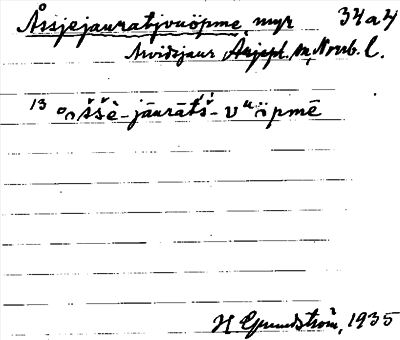 Åssjejauratjvuöpme myr 34a4
Arvidsjaur Arjepl. m, Norrb. l.
13 oššè-jāurātš-vuopmē
H Grundström, 1935